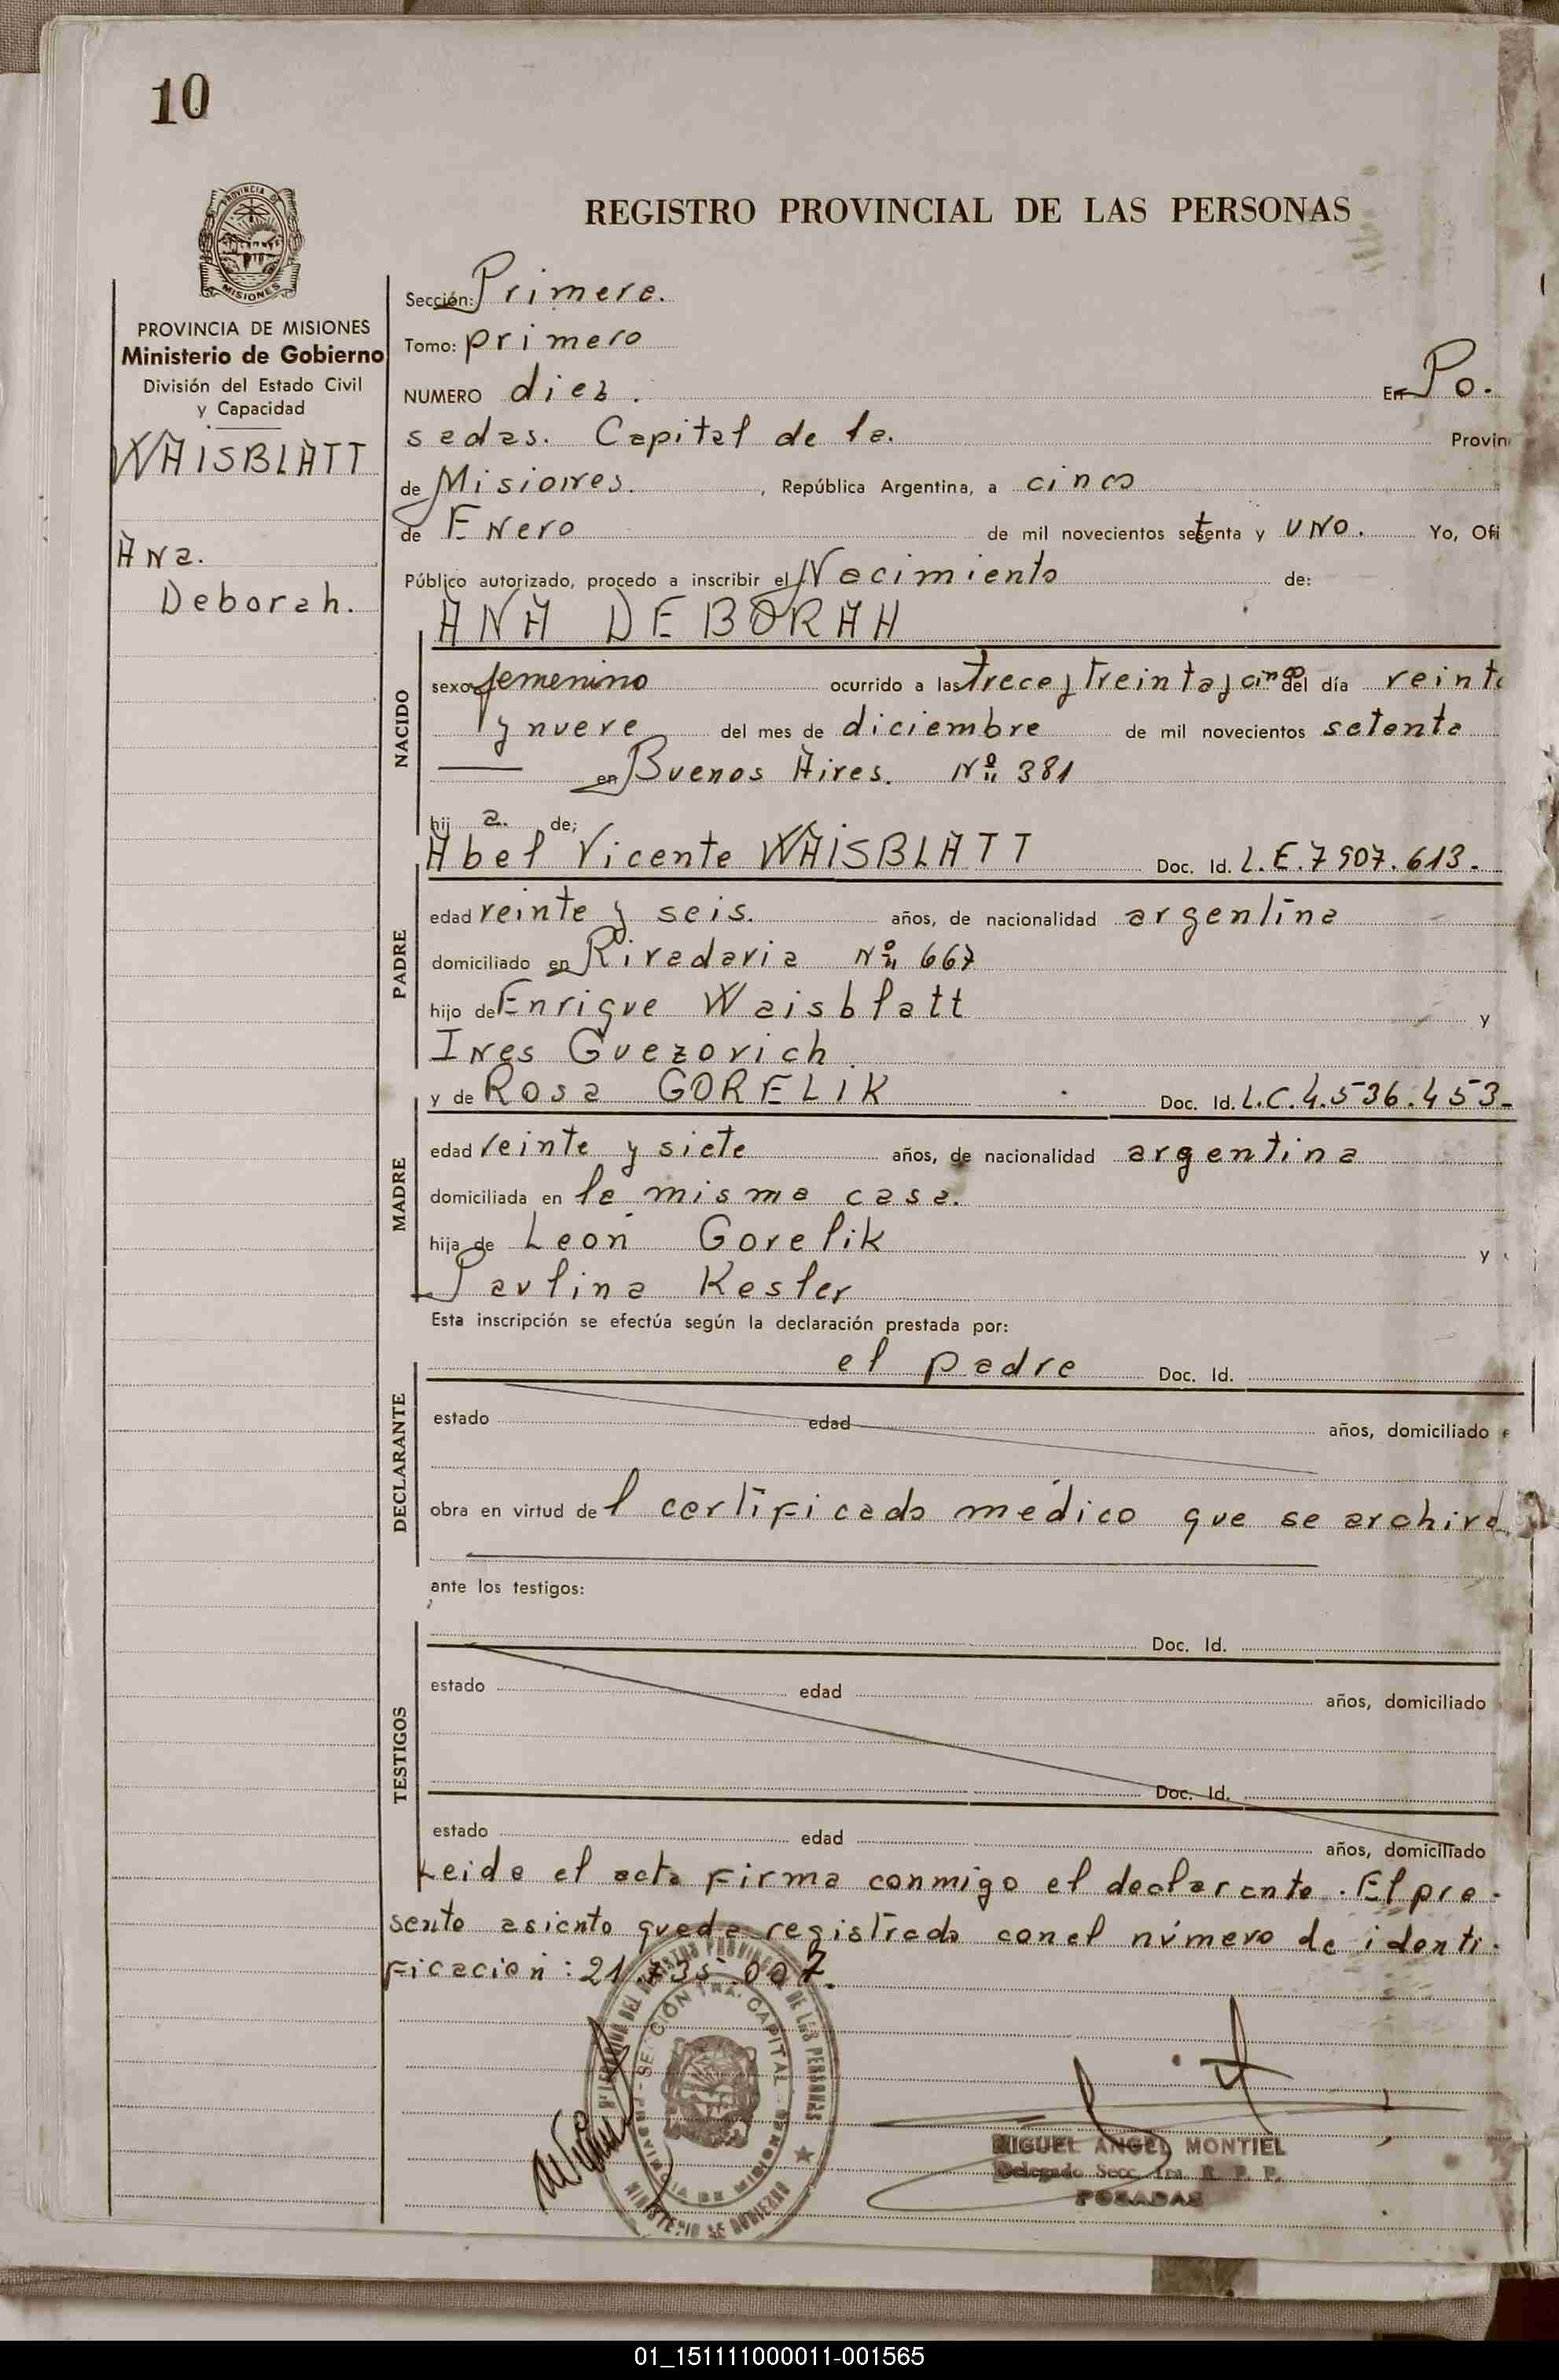 10
PROVINCIA DE
MISIONES
REGISTRO PROVINCIAL DE LAS PERSONAS
PROVINCIA DE MISIONES
Ministerio de Gobierno
División del Estado Civil
y Capacidad
WAISBLATT
Ana.
Deborah.
Sección: Primera.
Tomo: primero
NUMERO diez. En Po.
sadas. Capital de la. Provin
de Misiones. , República Argentina, a cinco
de Enero de mil novecientos setenta y uno. Yo, Ofi
Público autorizado, procedo a inscribir el Nacimiento de:
ANA DEBORAH
NACIDO
sexo femenino ocurrido a las trece y treinta y cinco del día veinte
y nueve del mes de diciembre de mil novecientos setenta
en Buenos Aires. Nº 381
hij a. de;
Abel Vicente WAISBLATT Doc. Id. L.E.7907.613.
PADRE
edad veinte y seis. años, de nacionalidad argentina
domiciliado en Rivadavia Nº 667
hijo de Enrique Waisblatt y
Ines Guezovich
y de Rosa GORELIK Doc. Id. L.C.4.536.453.
MADRE
edad veinte y siete años, de nacionalidad argentina
domiciliada en la misma casa.
hija de León Gorelik y
Paulina Kesler
Esta inscripción se efectúa según la declaración prestada por:
el padre Doc. Id.
DECLARANTE
estado edad años, domiciliado
obra en virtud de l certificado médico que se archiva
ante los testigos:
Doc. Id.
TESTIGOS
estado edad años, domiciliado
Doc. Id.
estado edad años, domiciliado
Leida el acta firma conmigo el declarante. El pre-
sente asiento queda registrado con el número de identi-
ficación: 21
SECCIÓN 1RA. CAPITAL
PROVINCIA DE MISIONES
MINISTERIO DE GOBIERNO
MIGUEL ANGEL MONTIEL
Delegado Secc. 1ra. R. P. P.
POSADAS
01_151111000011-001565